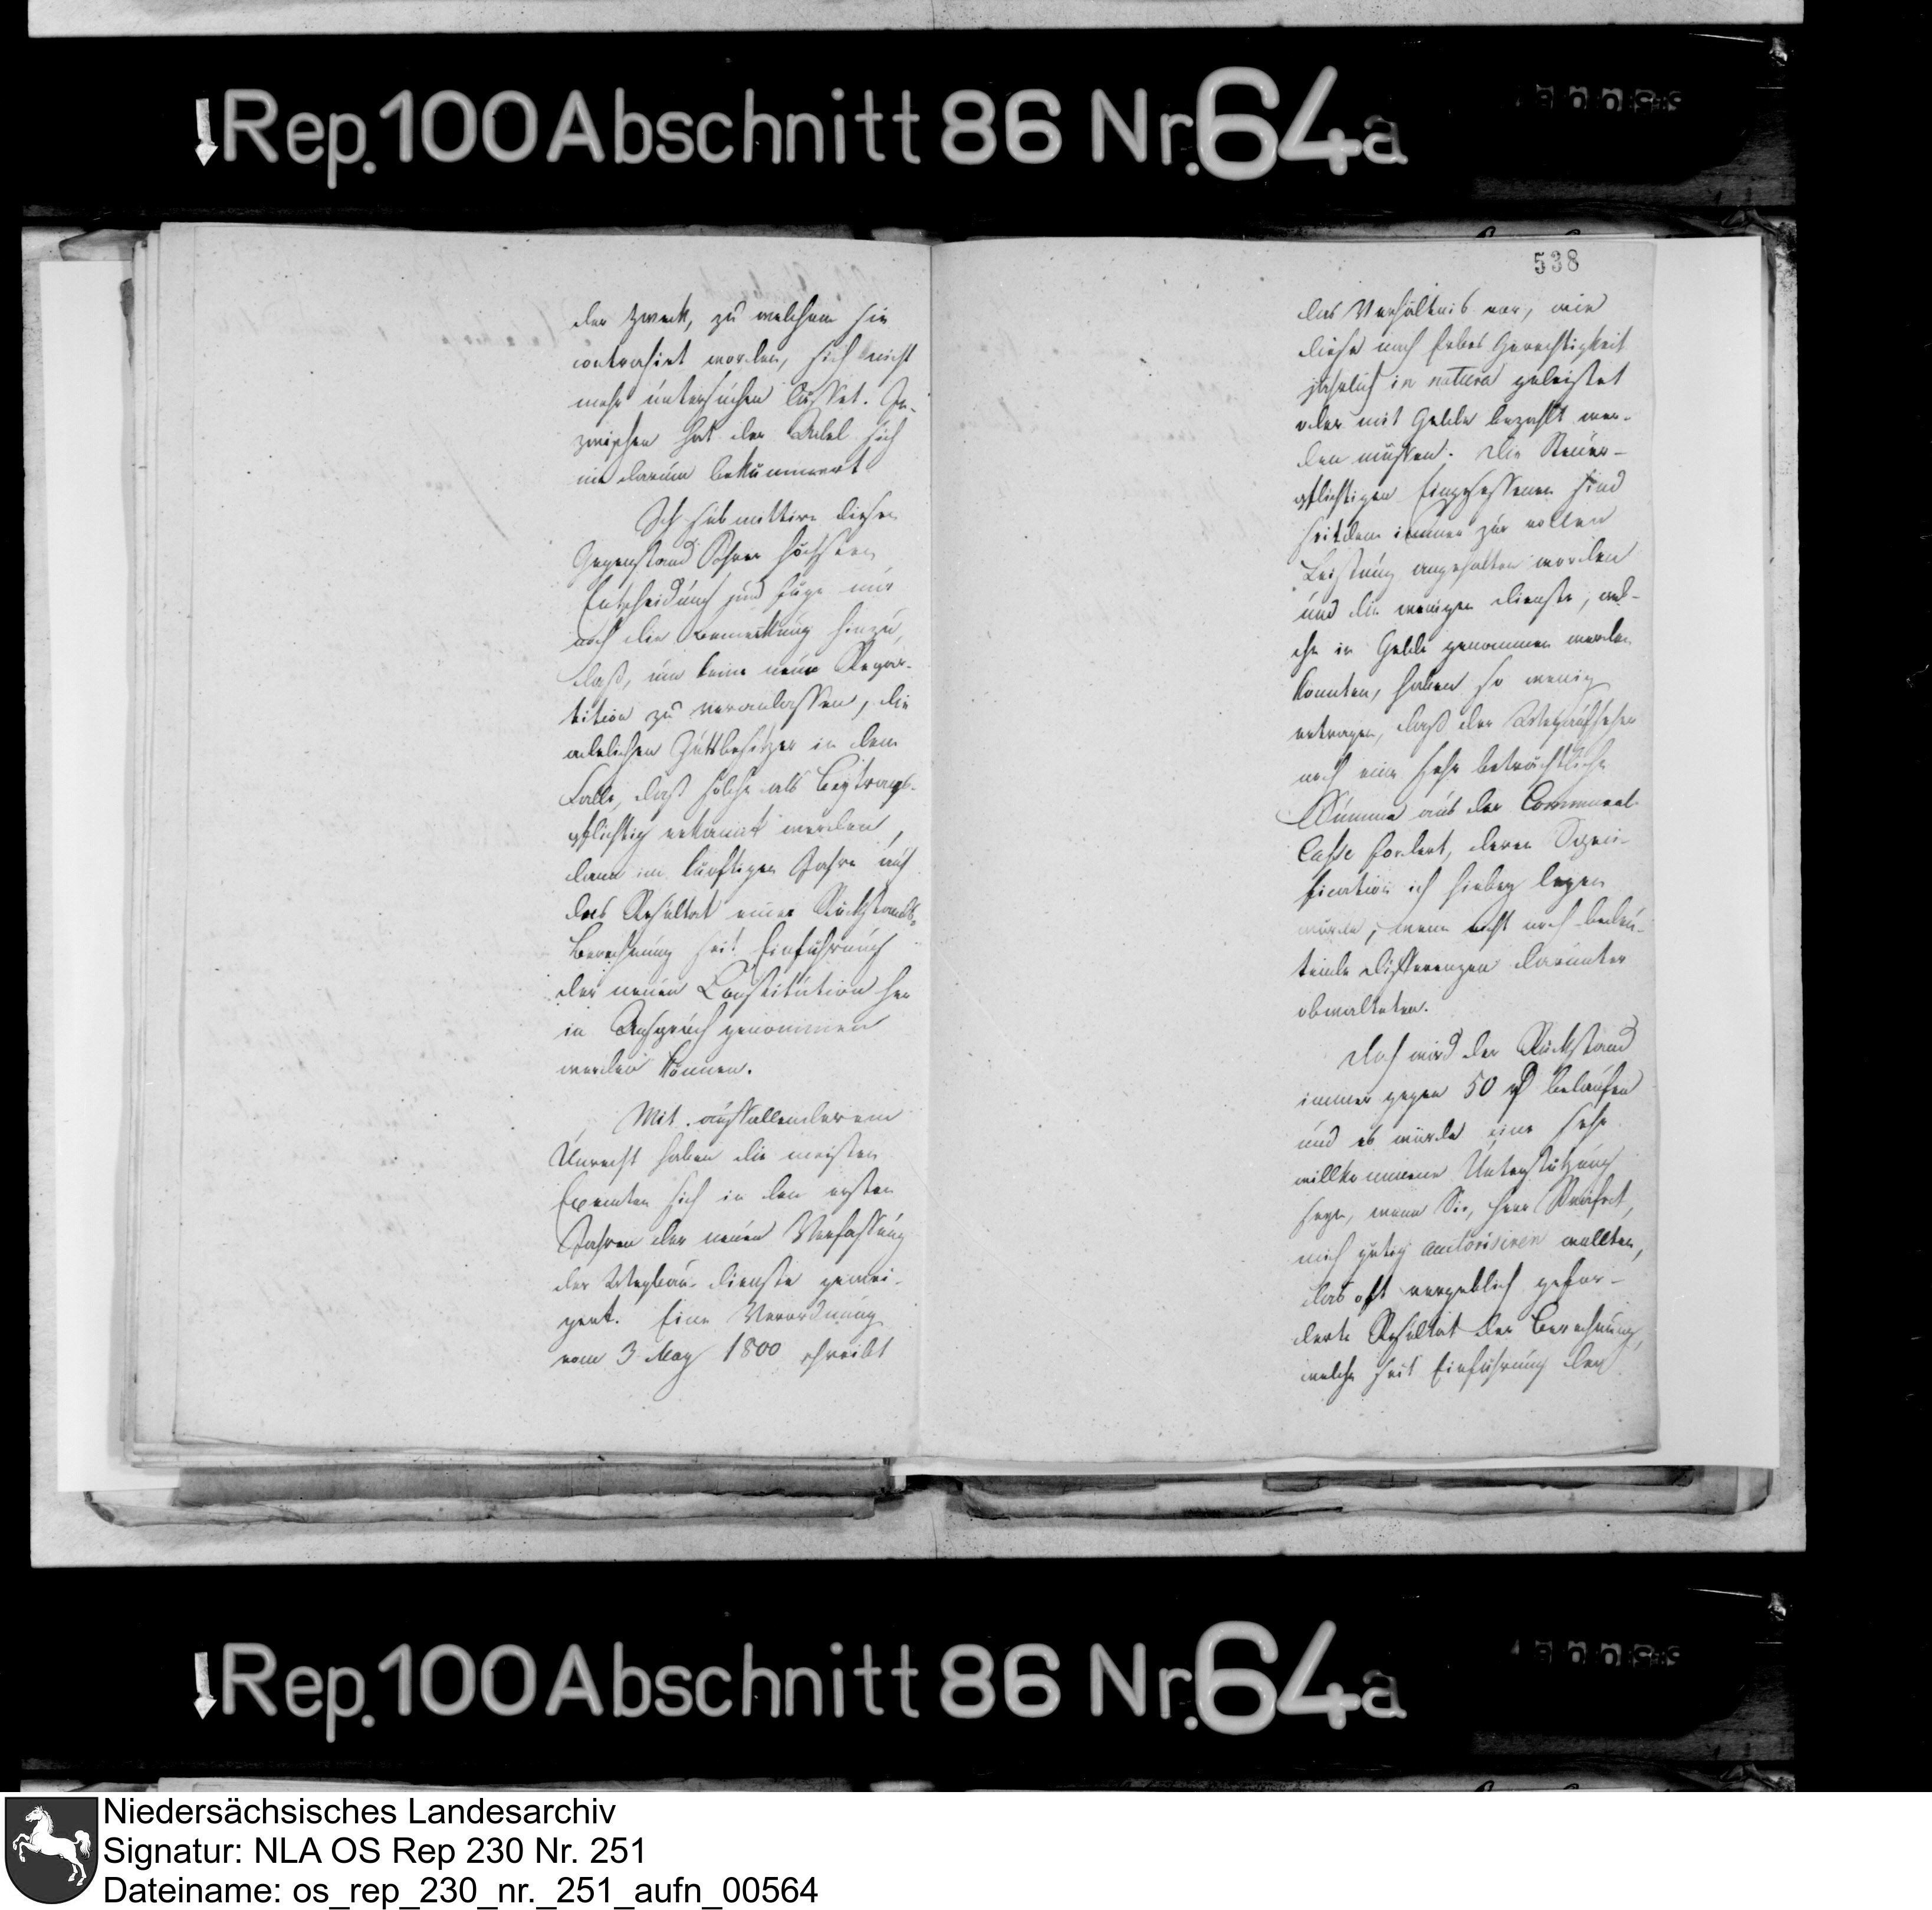 Rep. 100 Abschnitt 86 Nr. 64a
der Zweck, zu welchem sie
contrahirt worden, sich nicht
mehr untersuchen lässet. In-
zwischen hat der Adel sich
nie darum bekümmert
Ich submittire diesen
Gegenstand Ihrer höchsten
Entscheidung und füge nur
noch die Bemerkung hinzu,
daß, um keine neue Repar-
tition zu veranlassen, die
adelichen Gutsbesitzer in dem
Falle, daß solche als Beytrags-
pflichtig erkannt werden,
dann im künftigen Jahre auf
das Resultat einer Rückstands-
Berechnung seit Einführung
der neuen Constitution her
in Anspruch genommen
werden können.
Mit auffallenderem
Unrecht haben die meisten
Exemten sich in den ersten
Jahren der neuen Verfassung
der Wegbau-dienste gewei-
gert. Eine Verordnung
vom 3 May 1800 schreibt
538
das Verhältnis vor, wie
diese nach Gerechtigkeit
jährlich in natura geleistet
oder mit Gelde bezahlt wer-
den müssen. Die Steuer-
pflichtigen Eingesessenen sind
seitdem immer zur vollen
Leistung angehalten worden
und die wenigen Dienste, wel-
che in Gelde genommen werden
konnten, haben so wenig
ertragen, daß der Wegaufseher
noch eine sehr beträchtliche
Summe aus der Communal-
Casse fordert, deren Speci-
fication ich hiebey legen
würde, wenn nicht noch bedeu-
tende Differenzen darunter
obwalteten.
Doch wird der Rückstand
immer gegen 50 belaufen
und es würde eine sehr
willkommene Unterstützung
seyn, wenn Sie, Herr Präfect,
mich gütig autorisiren wollten,
das oft vergeblich gefor-
derte Resultat der Berechnung,
welche seit Einführung der
Rep. 100 Abschnitt 86 Nr. 64a
Niedersächsisches Landesarchiv
Signatur: NLA OS Rep 230 Nr. 251
Dateiname: os_rep_230_nr._251_aufn_00564